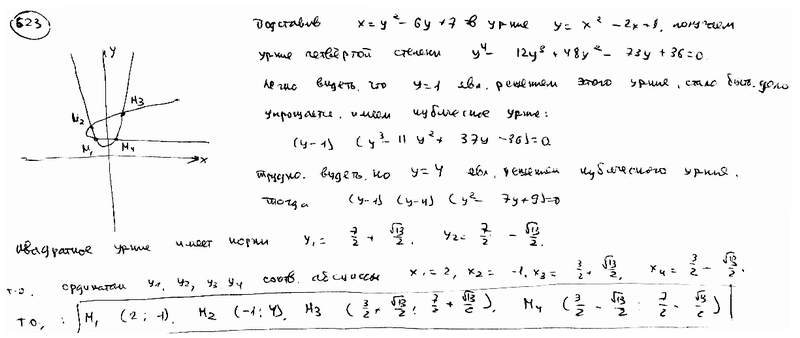 623
Подставив x = y² - 6y + 7 в ур-ние y = x² - 2x + 1, получаем
ур-ние четвёртой степени y⁴ - 12y³ + 48y² - 73y + 36 = 0.
Легко видеть, что y=1 явл. решением этого ур-ния, стало быть, дело
упрощается, имеем кубическое ур-ние:
(y-1) (y³ - 11y² + 37y - 36) = 0
Трудно видеть, но y=4 явл. решением кубического ур-ния.
Тогда (y-1) (y-4) (y² - 7y + 9) = 0
Квадратное ур-ние имеет корни y₁ = 7/2 + √13/2, y₂ = 7/2 - √13/2.
т.о. ординатам y₁, y₂, y₃ y₄ соотв. абсциссы x₁ = 2, x₂ = -1, x₃ = 3/2 + √13/2, x₄ = 3/2 - √13/2.
т.о. : M₁ (2; -1), M₂ (-1; 4), M₃ (3/2 + √13/2; 7/2 + √13/2), M₄ (3/2 - √13/2; 7/2 - √13/2)
y
M₃
M₂
M₁ M₄
x